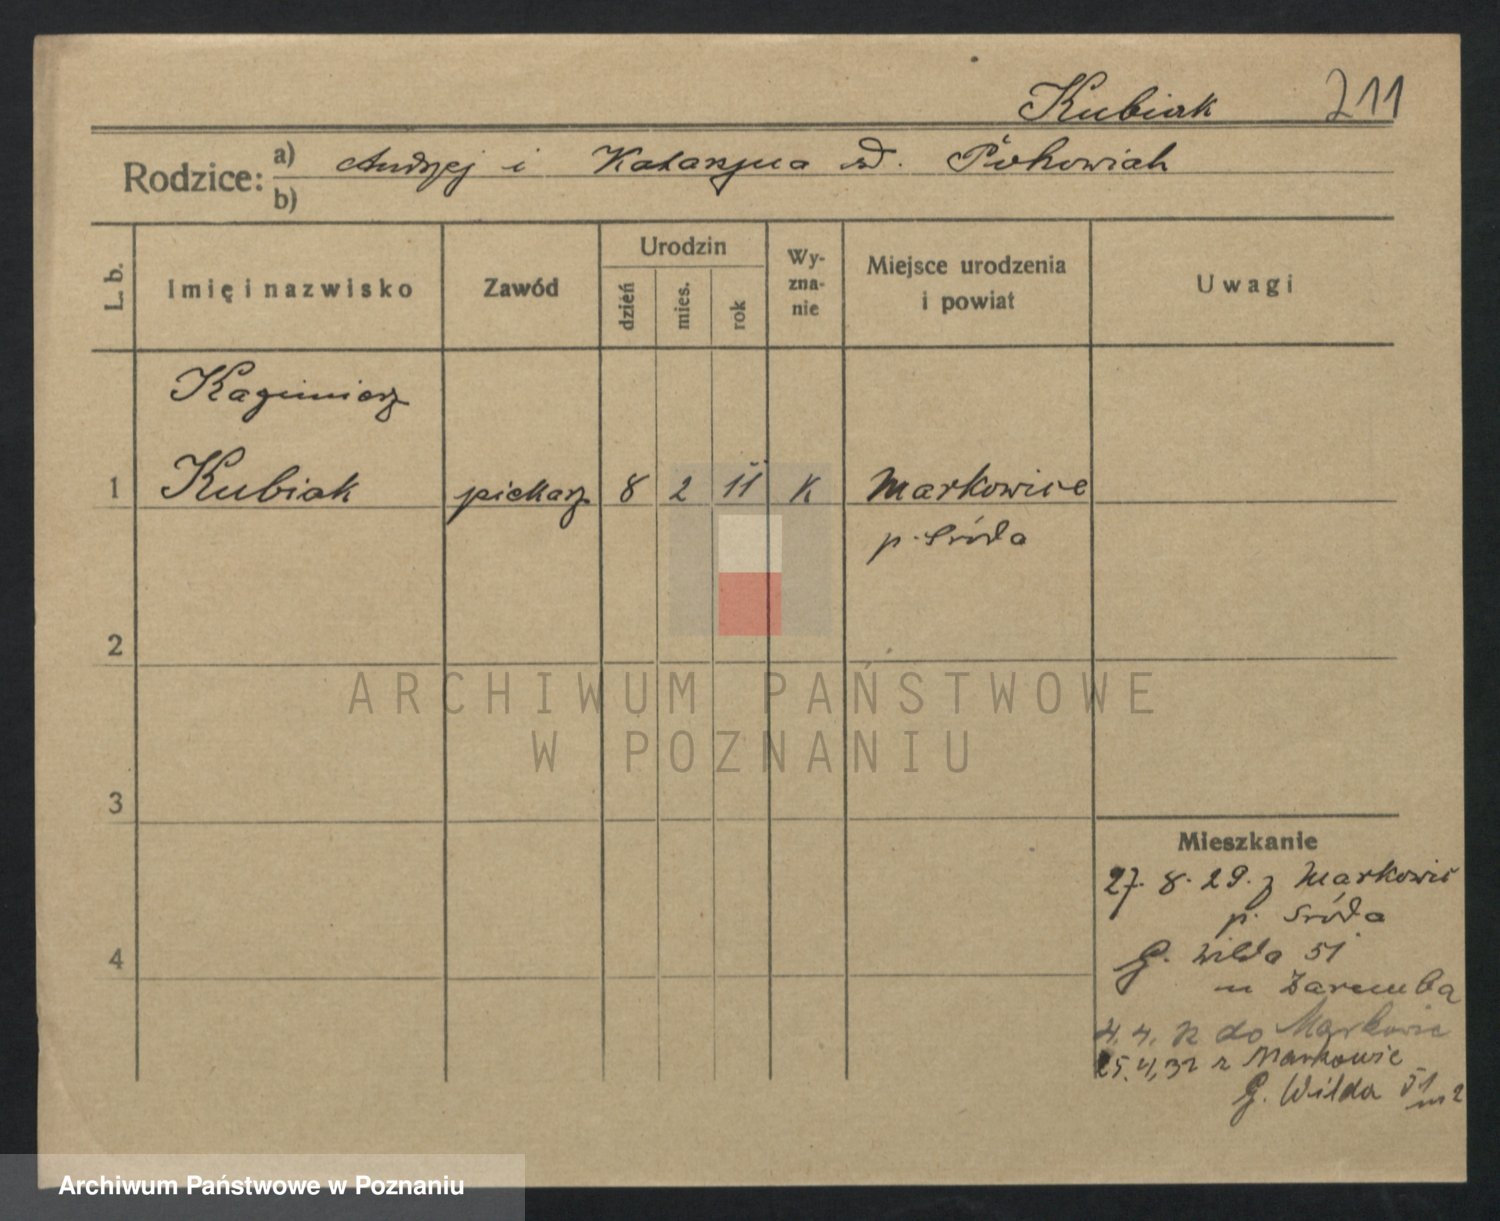 Kubiak 211
Rodzice: a) Andrzej i Katarzyna
b)
L. b. Imię i nazwisko Zawód Urodzin dzień mies. rok Wy-zna-nie Miejsce urodzenia i powiat Uwagi
Kazimierz
1 Kubiak piekarz 8 2 11 K Markowice
p. Środa
2
ARCHIWUM PAŃSTWOWE
W POZNANIU
3
Mieszkanie
27. 8. 29. z Markowic
p. Środa
4
G. Wilda 51
Zaremba
4. 4. do Markowic
25.4.32 z Markowic
G. Wilda 51
m 2
Archiwum Państwowe w Poznaniu